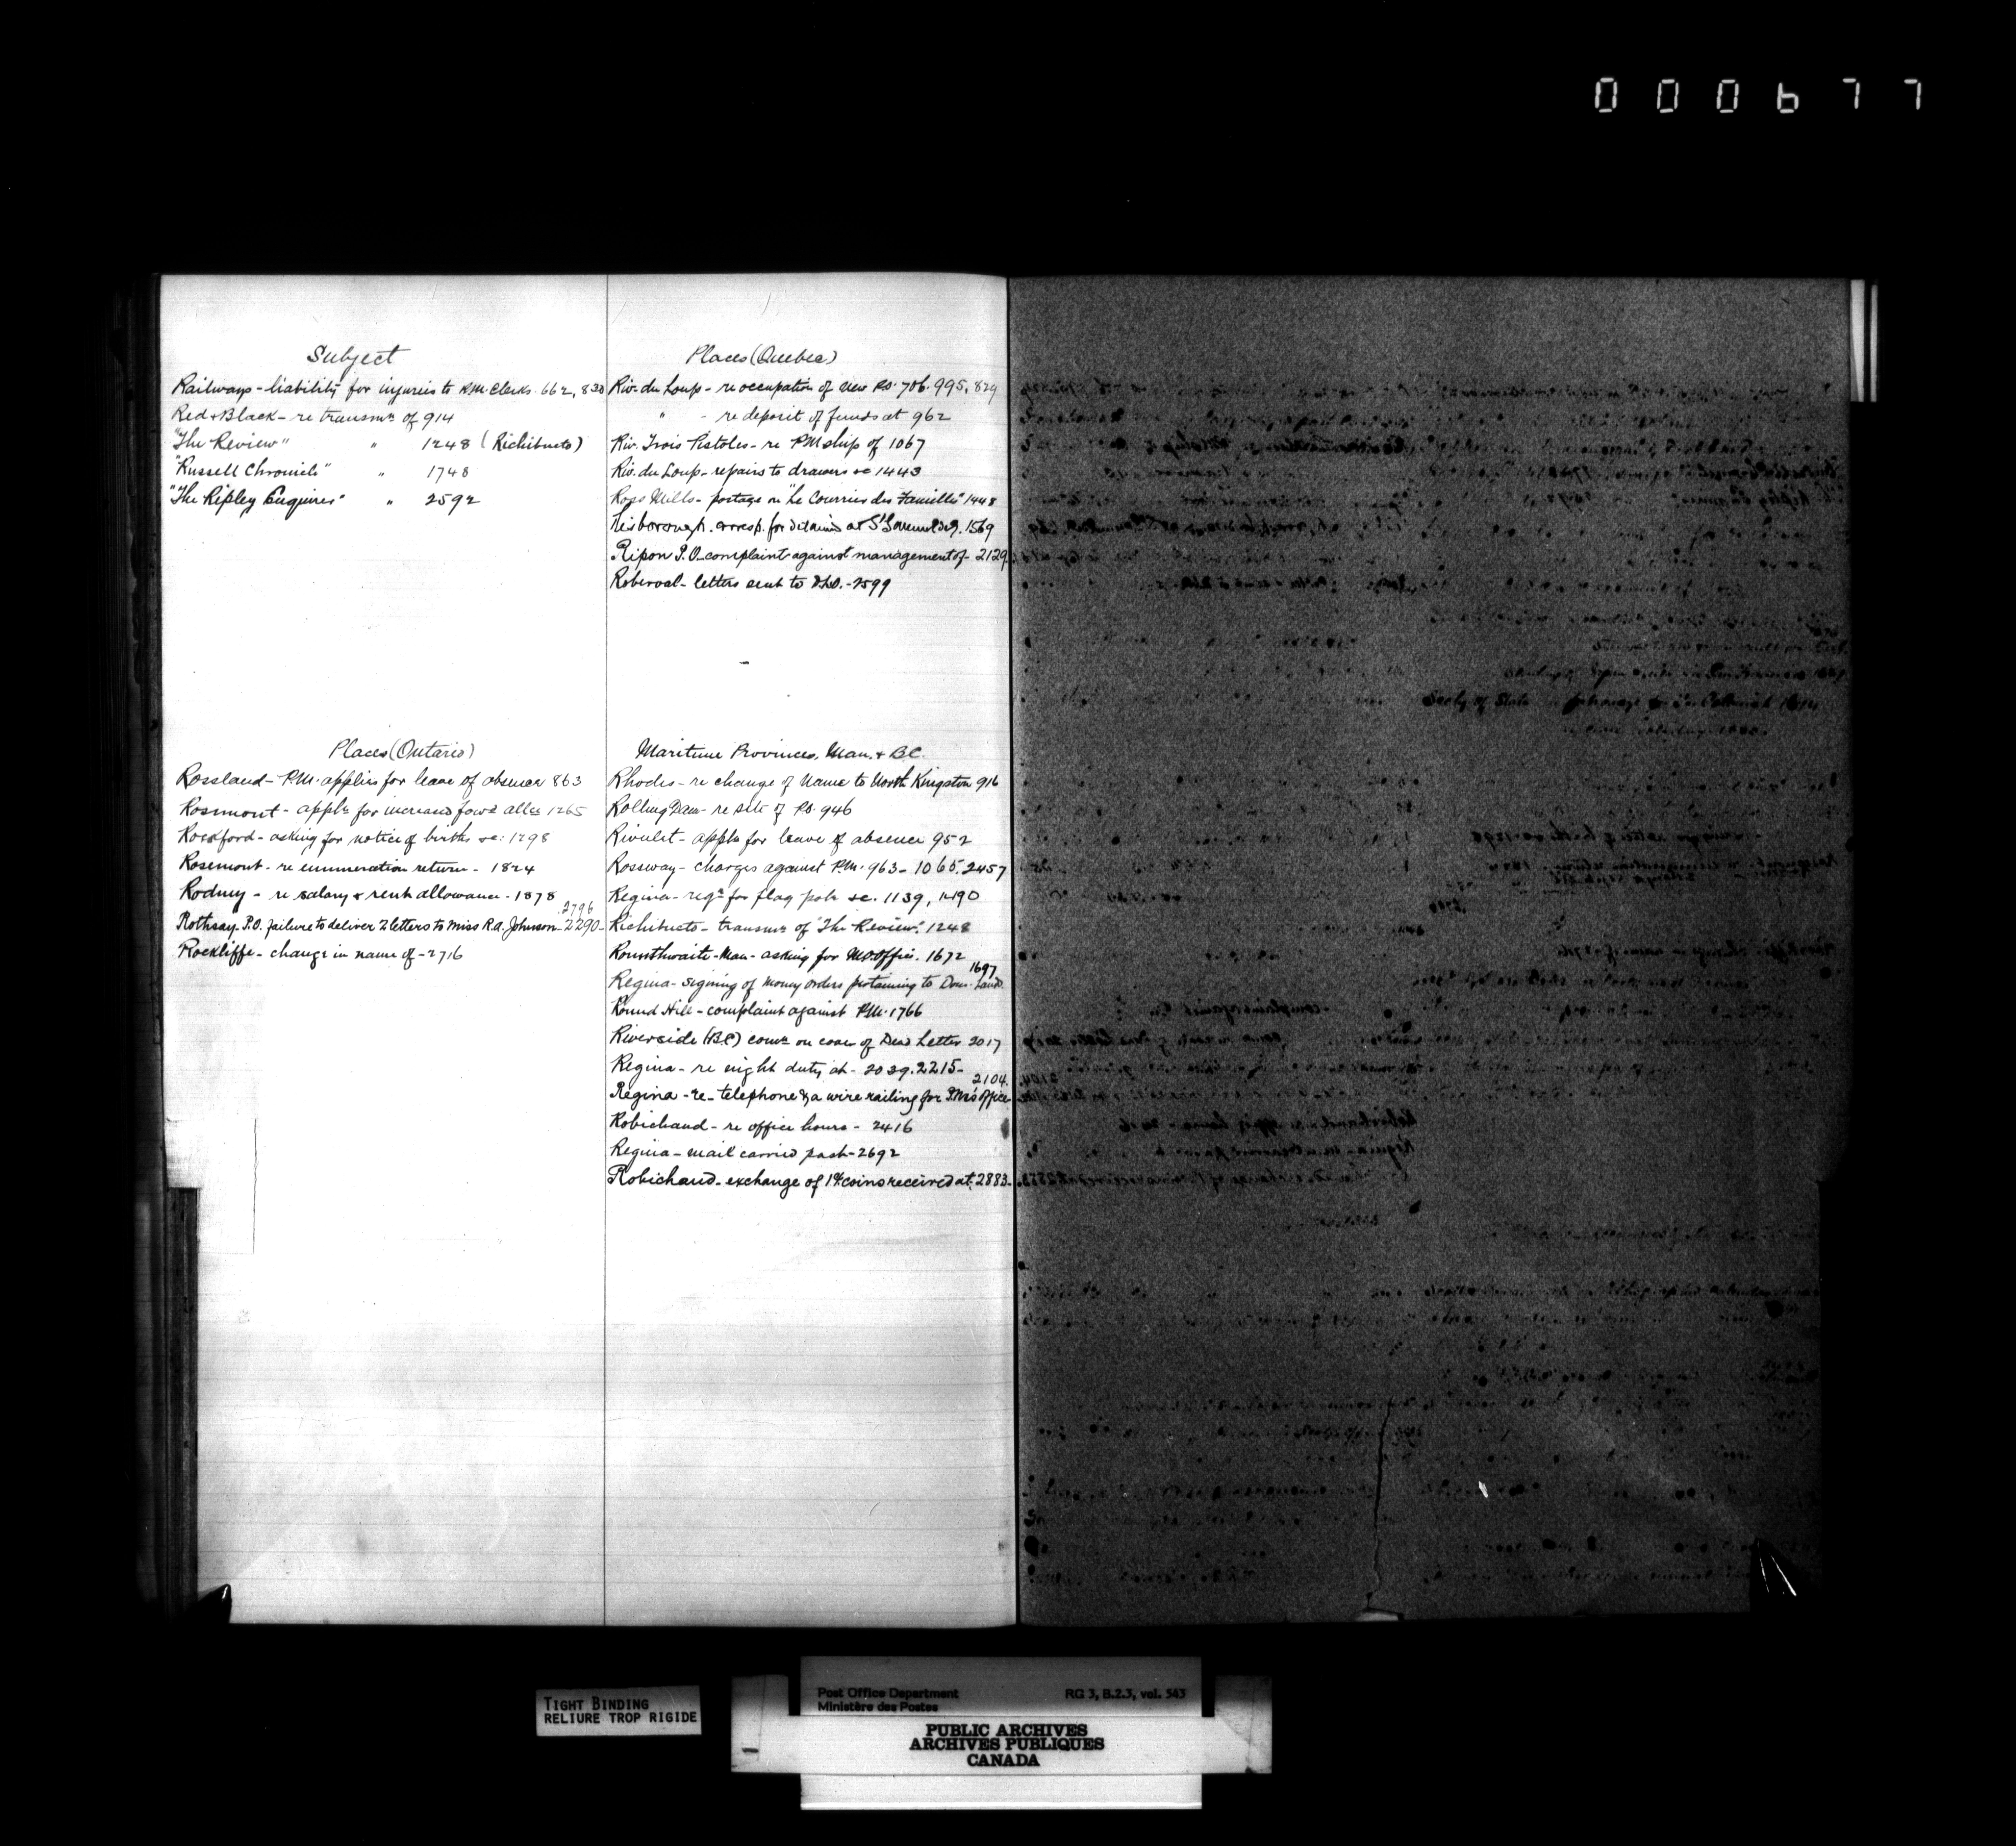 000677
Subject
Railways - liability for injuries to R.M. Clerks. 662, 830
Red & Black - re transmn of 914
"The Review" " 1248 (Richibucto)
"Russell Chronicle" " 1748
"The Ripley Enquirer" " 2592
Places (Quebec)
Riv. du Loup - re occupation of new P.O. 706. 995, 829
" - re deposit of funds at 962
Riv. Trois Pistoles - re PM ship of 1067
Riv. du Loup - repairs to drawers &c 1443
Rogs Mills - postage on "Le Courrier des Familles" 1448
Risborough. corresp. for detained at 1569
Ripon P.O. complaint against management of - 2129.
Roberval - letters sent to D.L.O. - 2599
Places (Ontario)
Rossland - P.M. applies for leave of absence 863
Rosmont - appln for increased fowd allce 1265
Rockford - asking for notice of births &c: 1298
Rosemont - re enumeration return - 1824
Rodney - re salary & rent allowance - 1878
2796
Rothsay P.O. failure to deliver 2 letters to Miss R.A. Johnson - 2290 -
Rockliffe - change in name of - 2716
Maritime Provinces, Man. & B.C.
Rhodes - re change of name to North Kingston 916
Rolling Dam - re site of P.O. 946
Rivulet - appln for leave of absence 952
Rossway - charges against P.M. 963 - 1065. 2457
Regina - reqn for flag pole &c. 1139, 1190
Richibucto - transmn of "The Review". 1248
Rounthwaite - Man - asking for M.O. Office. 1672
1697
Regina - signing of money orders pertaining to Dom. Lands.
Round Hill - complaint against P.M. 1766
Riverside (B.C.) comn on cover of Dead Letter 2017
Regina - re night duty at - 2039. 2215 -
2104.
Regina - re - telephone & a wire railing for P.M's office
Robichaud - re office hours - 2416
Regina - mail carried past - 2692
Robichaud - exchange of 1¢ coins received at; 2883 -
TIGHT BINDING
RELIURE TROP RIGIDE
Post Office Department RG 3, B.2.3, vol. 543
Ministère des Postes
PUBLIC ARCHIVES
ARCHIVES PUBLIQUES
CANADA